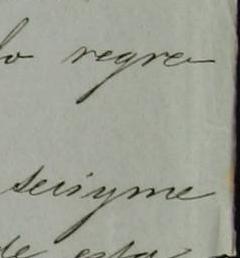 lo regre
seisyme
de esta